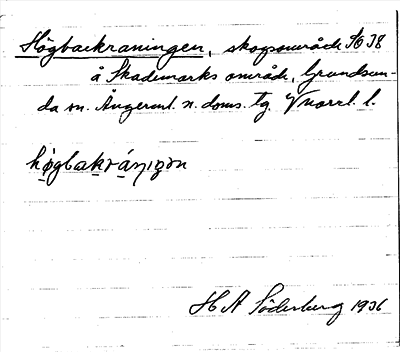 Högbackraningen, skogsområde SO 38
å Skademarks område, Grundsun-
da sn. Ångerml. n. doms. tg. Vnorrl. l.
högbakrániŋən
H A Söderberg 1936